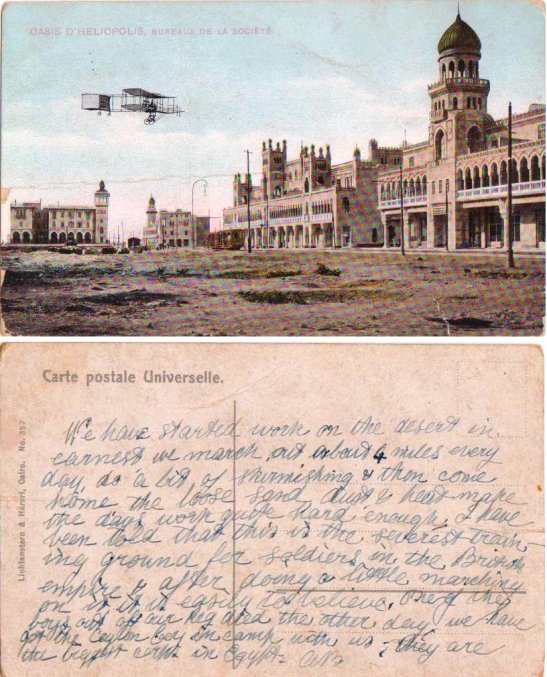 OASIS D'HELIOPOLIS, BUREAUX DE LA SOCIÉTÉ
Carte postale Universelle.
Lichtenstern & Harari, Cairo. No. 357
We have started work on the desert in
earnest we march out about 4 miles every
day, do a bit of skirmishing & then come
home the loose sand dust & heat make
the days work quite hard enough, I have
been told that this is the severest train-
ing ground for soldiers in the British
empire & after doing a little marching
on it it is easily to believe. One of the
boys out of our Reg died the other day, we have
got the Ceylon boys in camp with us, they are
the biggest in Egypt -